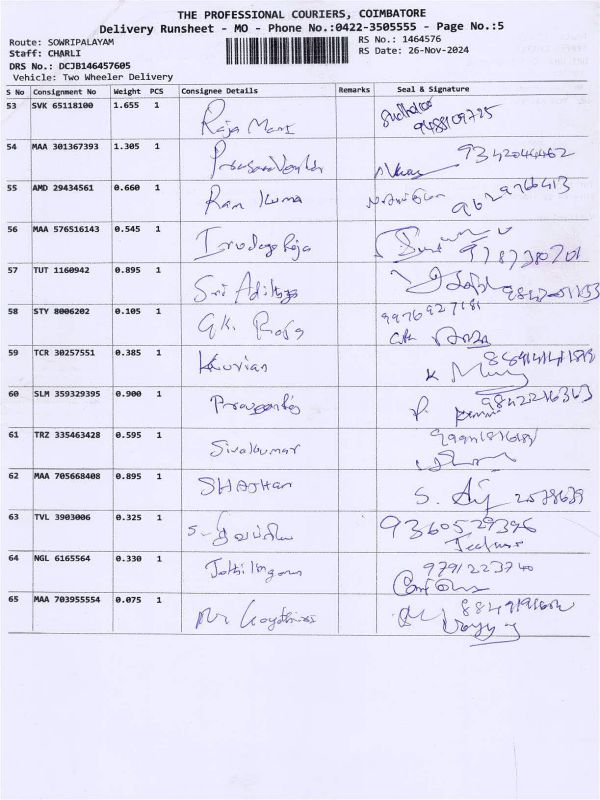 THE PROFESSIONAL COURIERS, COIMBATORE
Delivery Runsheet - MO - Phone No.:0422-3505555 - Page No.:5
Route: SOWRIPALAYAM RS No.: 1464576
Staff: CHARLI RS Date: 26-Nov-2024
DRS No.: DCJB146457605
Vehicle: Two Wheeler Delivery
S No Consignment No Weight PCS Consignee Details Remarks Seal & Signature
53 SVK 65118100 1.655 1 Raja Mani
9488109725
54 MAA 301367393 1.305 1 9342044462
55 AMD 29434561 0.660 1 Ram Kuma 9629766413
56 MAA 576516143 0.545 1 Irudaya Raja 9787380701
57 TUT 1160942 0.895 1 Sri Aditya
58 STY 8006202 0.105 1 G.K. Raja 9976927181
59 TCR 30257551 0.385 1 Kurian
60 SLM 359329395 0.900 1 9842216363
61 TRZ 335463428 0.595 1 Sivakumar
62 MAA 705668408 0.895 1 SHAJHAN S. 2578639
63 TVL 3903006 0.325 1 9360529396
64 NGL 6165564 0.330 1 9791223740
65 MAA 703955554 0.075 1